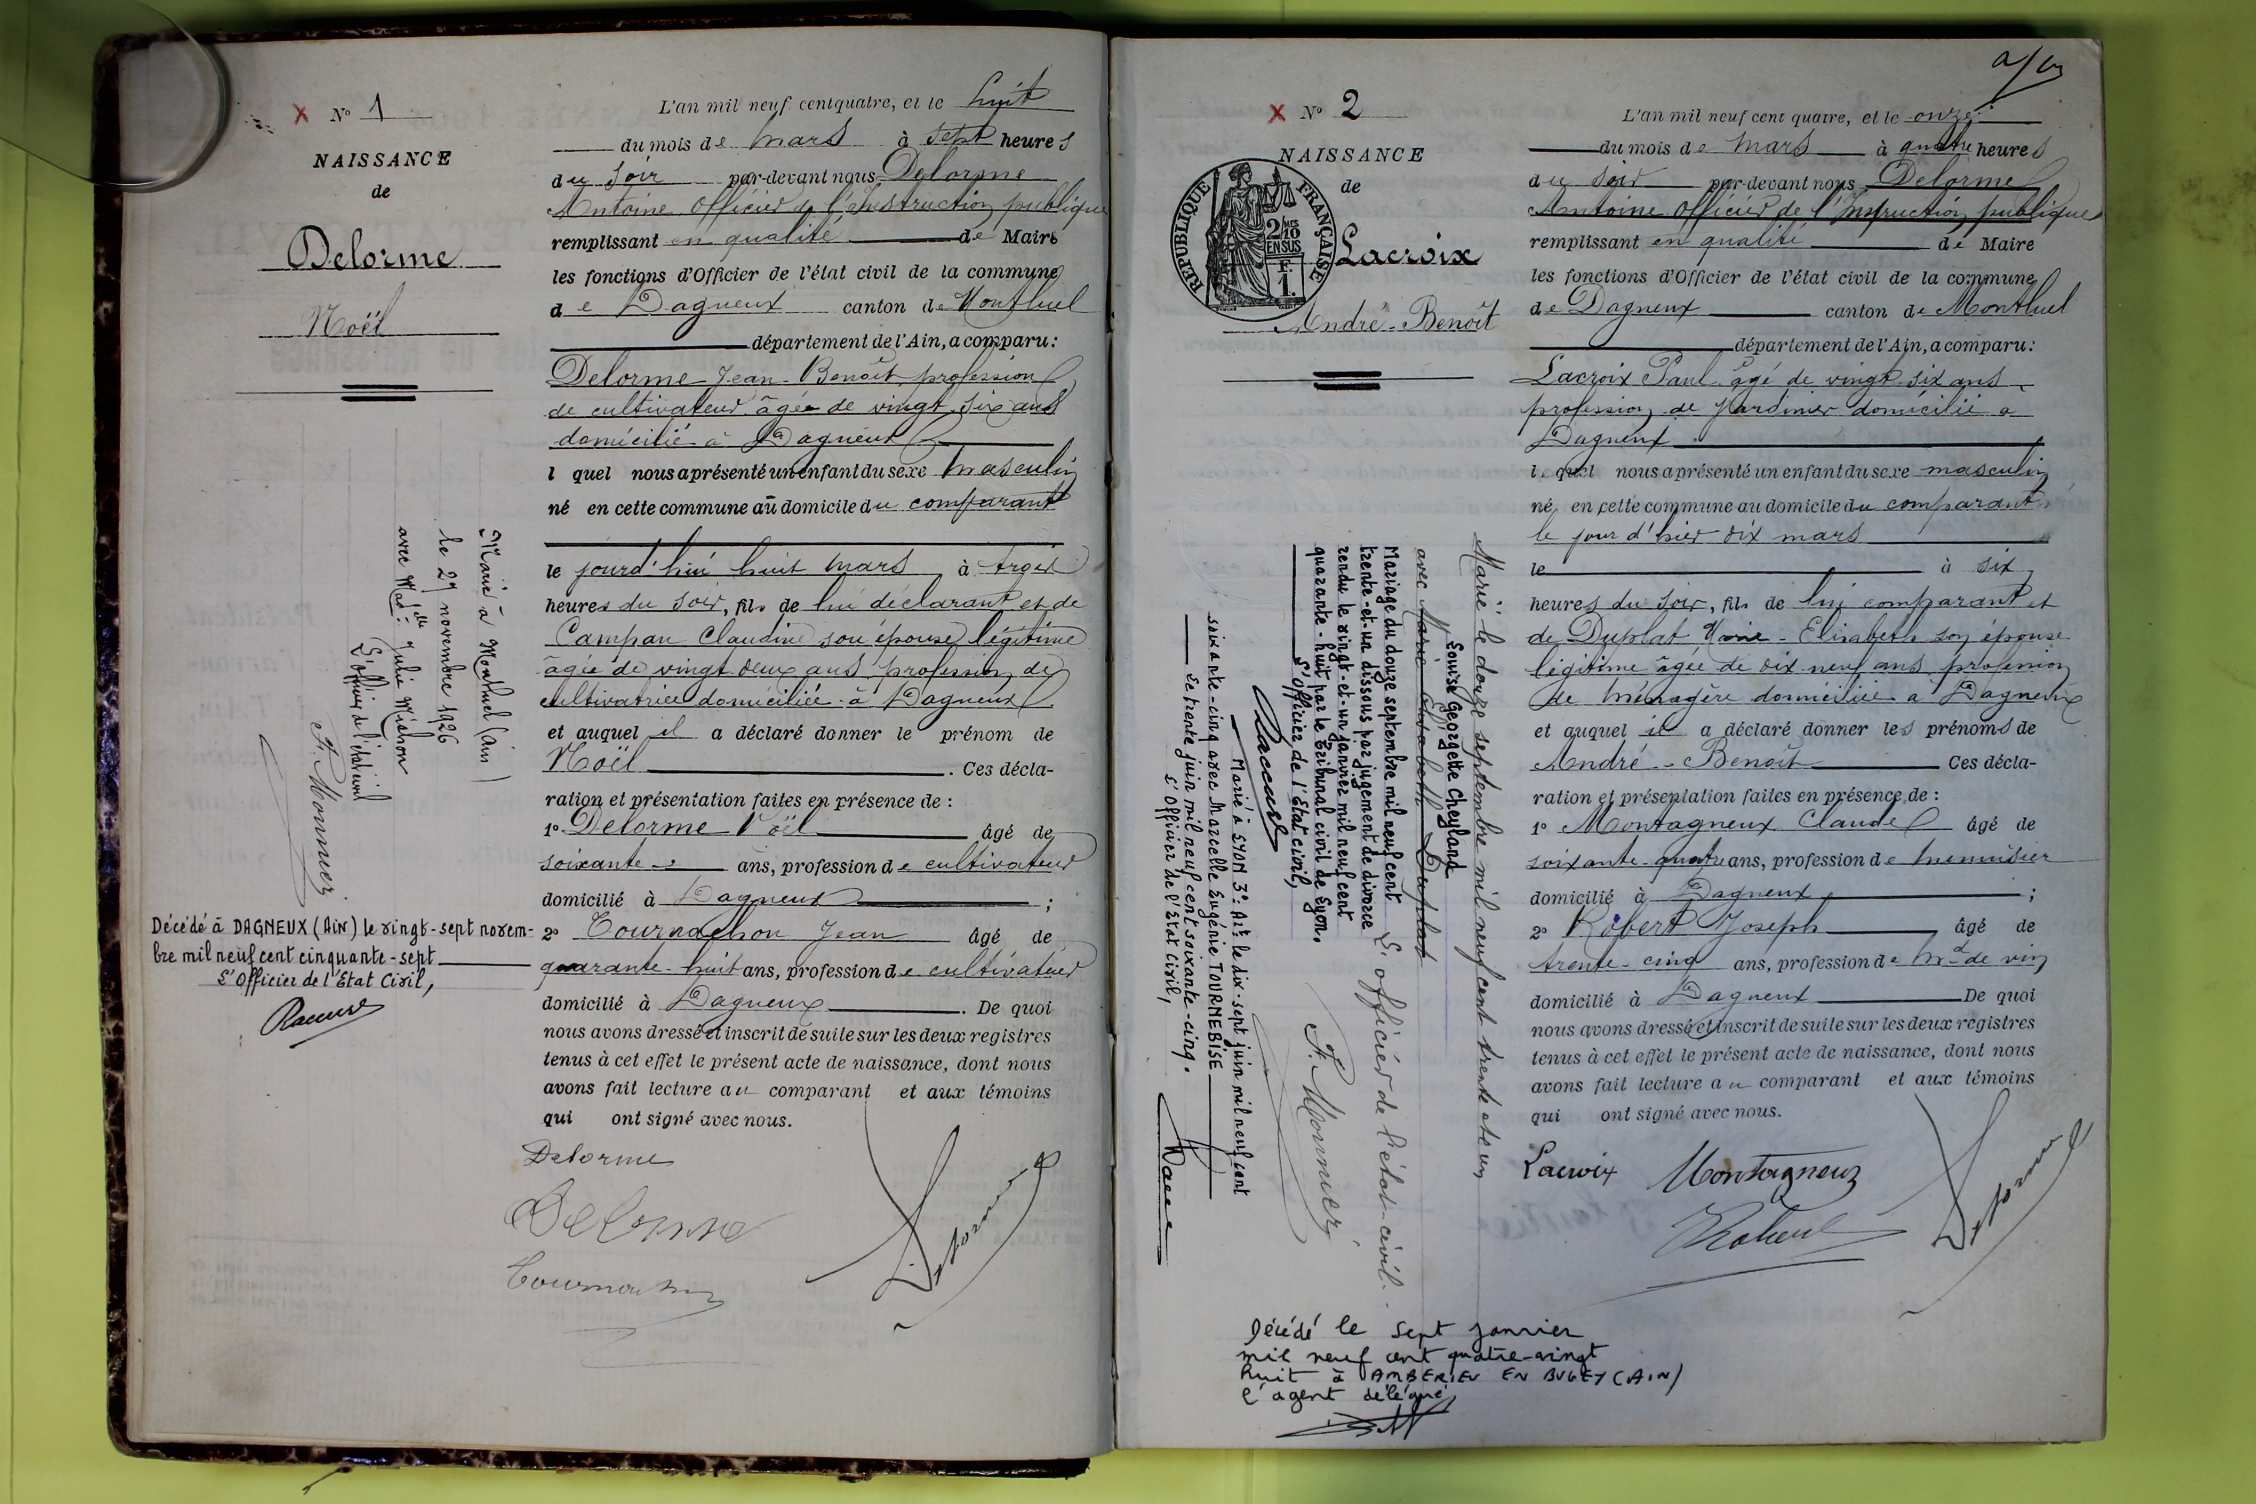 N° 1
NAISSANCE
de
Delorme
Noël
Marié à Montluel (Ain)
le 27 novembre 1926
avec Mad.elle Julie Mishon
L'officier de l'état civil
F. Monnier
Décédé à DAGNEUX (Ain) le vingt-sept novem-
bre mil neuf cent cinquante-sept
L'Officier de l'Etat Civil,
L'an mil neuf cent quatre, et le huit
du mois de mars à sept heures
du soir par-devant nous Delorme
Antoine officier de l'Instruction publique
remplissant en qualité de Maire
les fonctions d'Officier de l'état civil de la commune
de Dagneux canton de Montluel
département de l'Ain, a comparu:
Delorme Jean-Benoît, profession
de cultivateur âgée de vingt six ans
domicilié à Dagneux
l quel nous a présenté un enfant du sexe masculin
né en cette commune au domicile du comparant
le jourd'hui huit mars à trois
heures du soir, fils de lui déclarant et de
Campan Claudine son épouse légitime
âgée de vingt deux ans profession de
cultivatrice domiciliée à Dagneux
et auquel il a déclaré donner le prénom de
Noël . Ces décla-
ration et présentation faites en présence de :
1° Delorme Noël âgé de
soixante ans, profession de cultivateur
domicilié à Dagneux ;
2° Tournachon Jean âgé de
quarante-huit ans, profession de cultivateur
domicilié à Dagneux . De quoi
nous avons dressé et inscrit de suite sur les deux registres
tenus à cet effet le présent acte de naissance, dont nous
avons fait lecture au comparant et aux témoins
qui ont signé avec nous.
Delorme
Delorme
Tournachon
Delorme
N° 2
NAISSANCE
de
REPUBLIQUE FRANÇAISE
2/10 EN SUS
F. 1.
Lacroix
André-Benoît
Marié le douze septembre mil neuf cent trente et un
Louise Georgette Cheyland
avec Marie Elisabeth Duplat
L'officier de l'état-civil.
F. Monnier
Mariage du douze septembre mil neuf cent
trente-et-un dissous par jugement de divorce
rendu le vingt-et-un janvier mil neuf cent
quarante-huit par le Tribunal civil de Lyon.
L'Officier de l'Etat Civil,
Marié à LYON 3e Art le dix-sept juin mil neuf cent
soixante-cinq avec Marcelle Eugénie TOURNEBISE
Le trente juin mil neuf cent soixante-cinq.
L'Officier de l'Etat Civil,
L'an mil neuf cent quatre, et le onze
du mois de mars à quatre heures
du soir par-devant nous Delorme
Antoine officier de l'Instruction publique
remplissant en qualité de Maire
les fonctions d'Officier de l'état civil de la commune
de Dagneux canton de Montluel
département de l'Ain, a comparu:
Lacroix Paul âgé de vingt six ans
profession de jardinier domicilié à
Dagneux
le quel nous a présenté un enfant du sexe masculin
né en cette commune au domicile du comparant
le jour d'hier dix mars
le à six
heures du soir, fils de lui comparant et
de Duplat Marie-Elisabeth son épouse
légitime âgée de dix neuf ans profession
de ménagère domiciliée à Dagneux
et auquel il a déclaré donner les prénoms de
André-Benoît Ces décla-
ration et présentation faites en présence de :
1° Montagneux Claude âgé de
soixante-quatre ans, profession de menuisier
domicilié à Dagneux ;
2° Robert Joseph âgé de
trente-cinq ans, profession de Md de vin
domicilié à Dagneux De quoi
nous avons dressé et inscrit de suite sur les deux registres
tenus à cet effet le présent acte de naissance, dont nous
avons fait lecture au comparant et aux témoins
qui ont signé avec nous.
Lacroix Montagneux
Robert
Delorme
Décédé le sept janvier
mil neuf cent quatre-vingt
huit à AMBERIEU EN BUGEY (AIN)
l'agent délégué